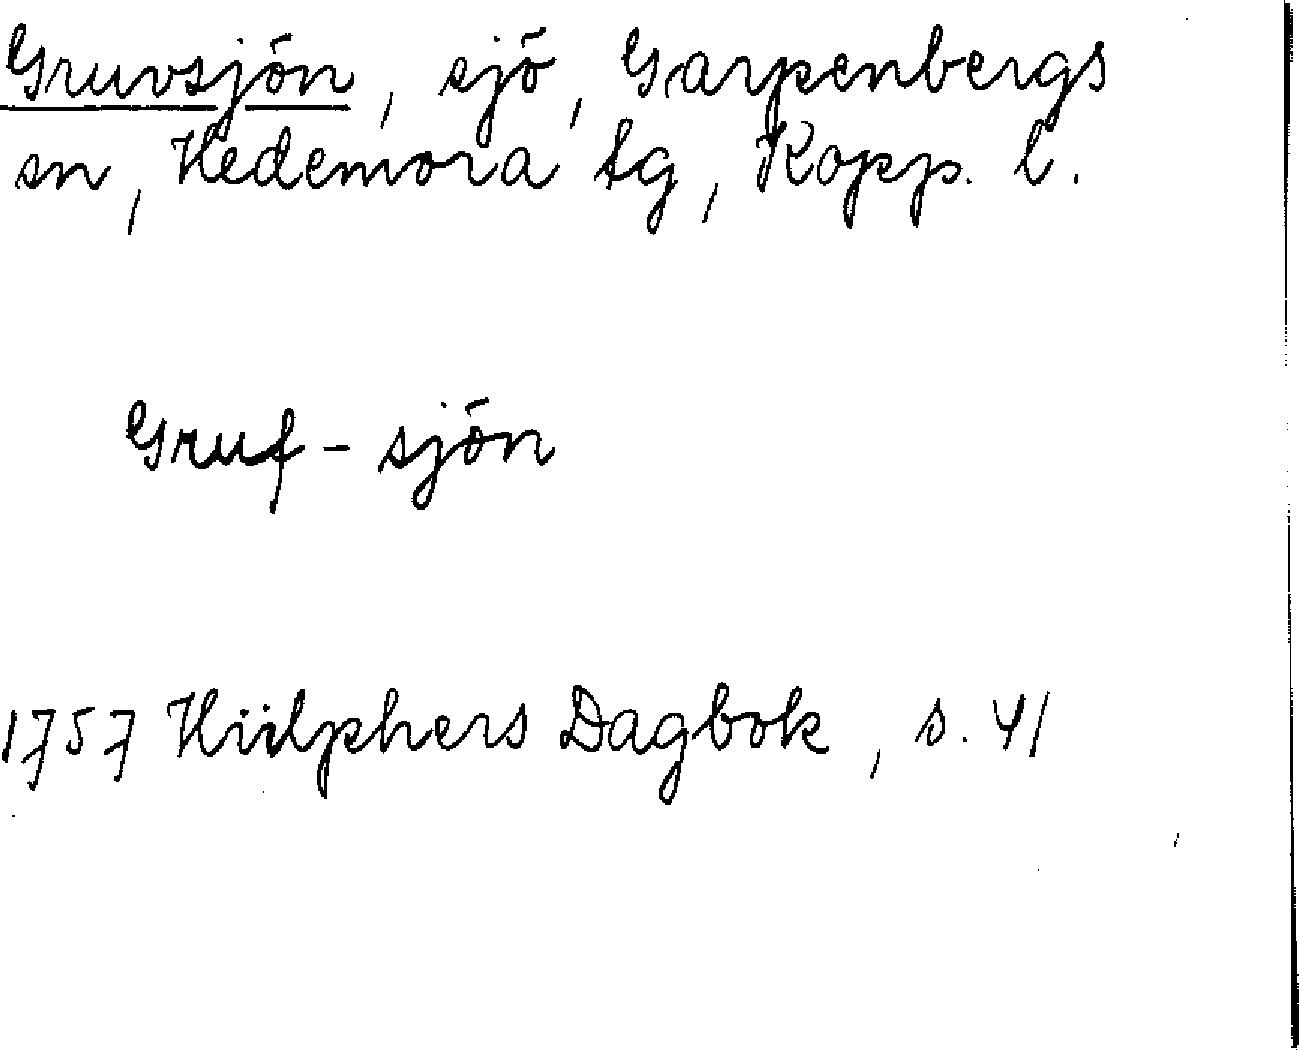 Gruvsjön, sjö, Garpenbergs
sn, Hedemora tg, Kopp. l.
Gruf-sjön
1757 Hülphers Dagbok, s. 41